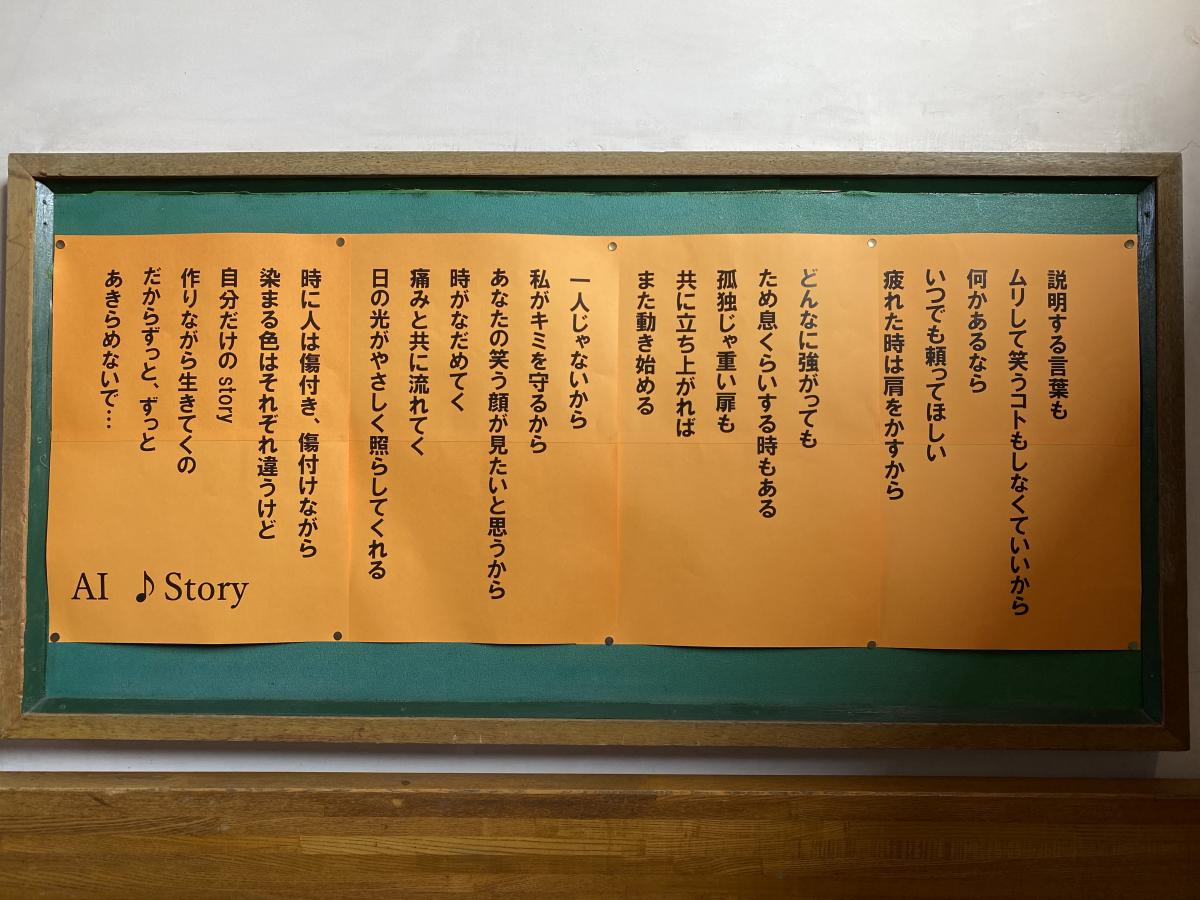 説明する言葉も
ムリして笑うコトもしなくていいから
何かあるなら
いつでも頼ってほしい
疲れた時は肩をかすから
どんなに強がっても
ため息くらいする時もある
孤独じゃ重い扉も
共に立ち上がれば
また動き始める
一人じゃないから
私がキミを守るから
あなたの笑う顔が見たいと思うから
時がなだめてく
痛みと共に流れてく
日の光がやさしく照らしてくれる
時に人は傷付き、傷付けながら
染まる色はそれぞれ違うけど
自分だけの story
作りながら生きてくの
だからずっと、ずっと
あきらめないで…
AI ♪ Story